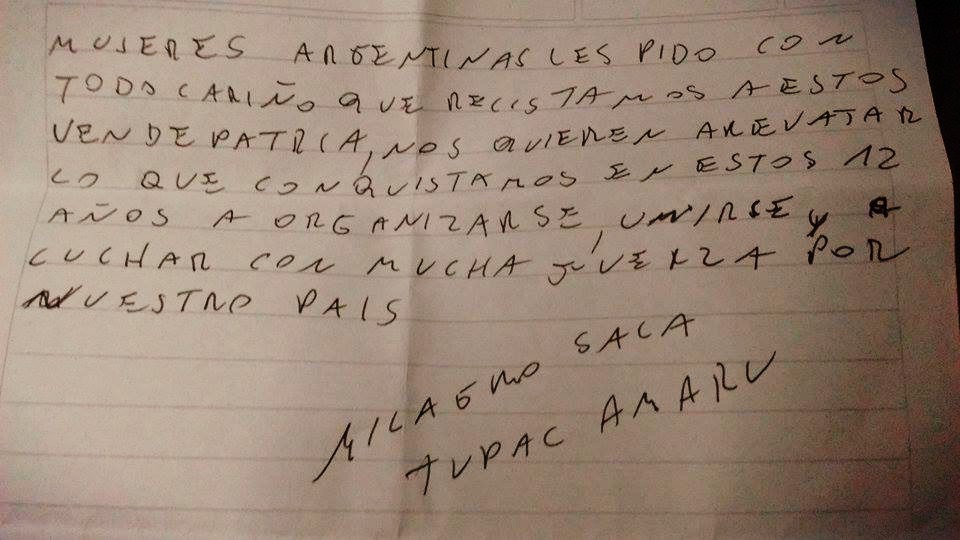 MUJERES ARGENTINAS LES PIDO CON
TODO CARIÑO QUE RECISTAMOS A ESTOS
VENDE PATRIA, NOS QUIEREN AREVATAR
LO QUE CONQUISTAMOS EN ESTOS 12
AÑOS A ORGANIZARSE, UNIRSE Y A
LUCHAR CON MUCHA JUVERZA POR
NUESTRO PAIS
MILAGRO SALA
TUPAC AMARU